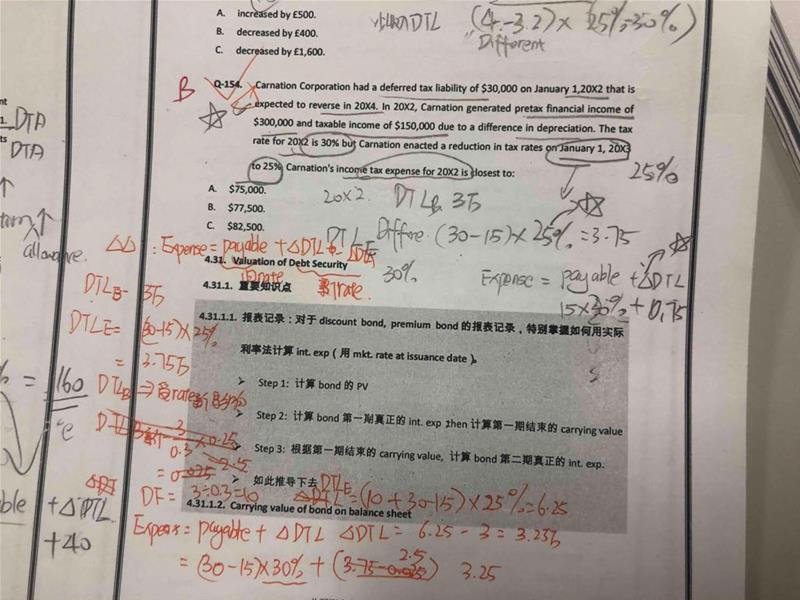 A. increased by £500.
B. decreased by £400.
C. decreased by £1,600.
DTL (4.-3.2)×(25%-30%)
Different
B Q-154. Carnation Corporation had a deferred tax liability of $30,000 on January 1,20X2 that is
expected to reverse in 20X4. In 20X2, Carnation generated pretax financial income of
$300,000 and taxable income of $150,000 due to a difference in depreciation. The tax
rate for 20X2 is 30% but Carnation enacted a reduction in tax rates on January 1, 20X3
to 25%. Carnation's income tax expense for 20X2 is closest to:
25%
A. $75,000.
B. $77,500.
C. $82,500.
20X2. DTLB 3万
DTLE Differe. (30-15)×25%=3.75
30%
Expense = payable + ΔDTL
15×30% + 0.75
DTA
DTA
allowance.
: Expense = payable + ΔDTL - ΔDTA
旧rate 新rate.
4.31. Valuation of Debt Security
4.31.1. 重要知识点
4.31.1.1. 报表记录：对于 discount bond, premium bond 的报表记录，特别掌握如何用实际
利率法计算 int. exp（用 mkt. rate at issuance date）。
Step 1: 计算 bond 的 PV
Step 2: 计算 bond 第一期真正的 int. exp ,then 计算第一期结束的 carrying value
Step 3: 根据第一期结束的 carrying value, 计算 bond 第二期真正的 int. exp.
如此推导下去
4.31.1.2. Carrying value of bond on balance sheet
DTLB= 3万
DTLE= (30-15)×25%
= 3.75万
= 160
DF = 3÷0.3=10
DTLE =(10+30-15)×25%=6.25
Expense = payable + ΔDTL ΔDTL = 6.25-3 = 3.25万
= (30-15)×30% + (3.75-0.025) 2.5 3.25
+ΔDTL
+40